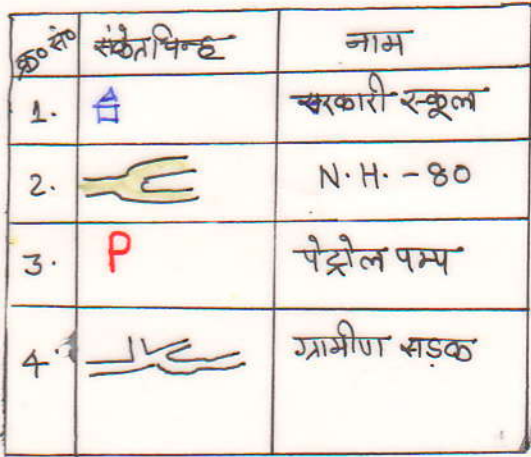 क्र० सं० संकेतचिन्ह नाम
1. सरकारी स्कूल
2. N.H. - 80
3. P पेट्रोल पम्प
4. ग्रामीण सड़क